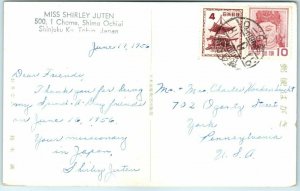 MISS SHIRLEY JUTEN
500, 1 Chome, Shimo Ochiai
Shinjuku Ku, Tokyo, Japan
June 19, 1956
Dear Friends,
Thank you for being
my Send-A-Way friends
on June 16, 1956.
Your missionary
in Japan,
Shirley Juten
4
10
Mr. + Mrs. Charles
732 Street
York
Pennsylvania
U.S.A.